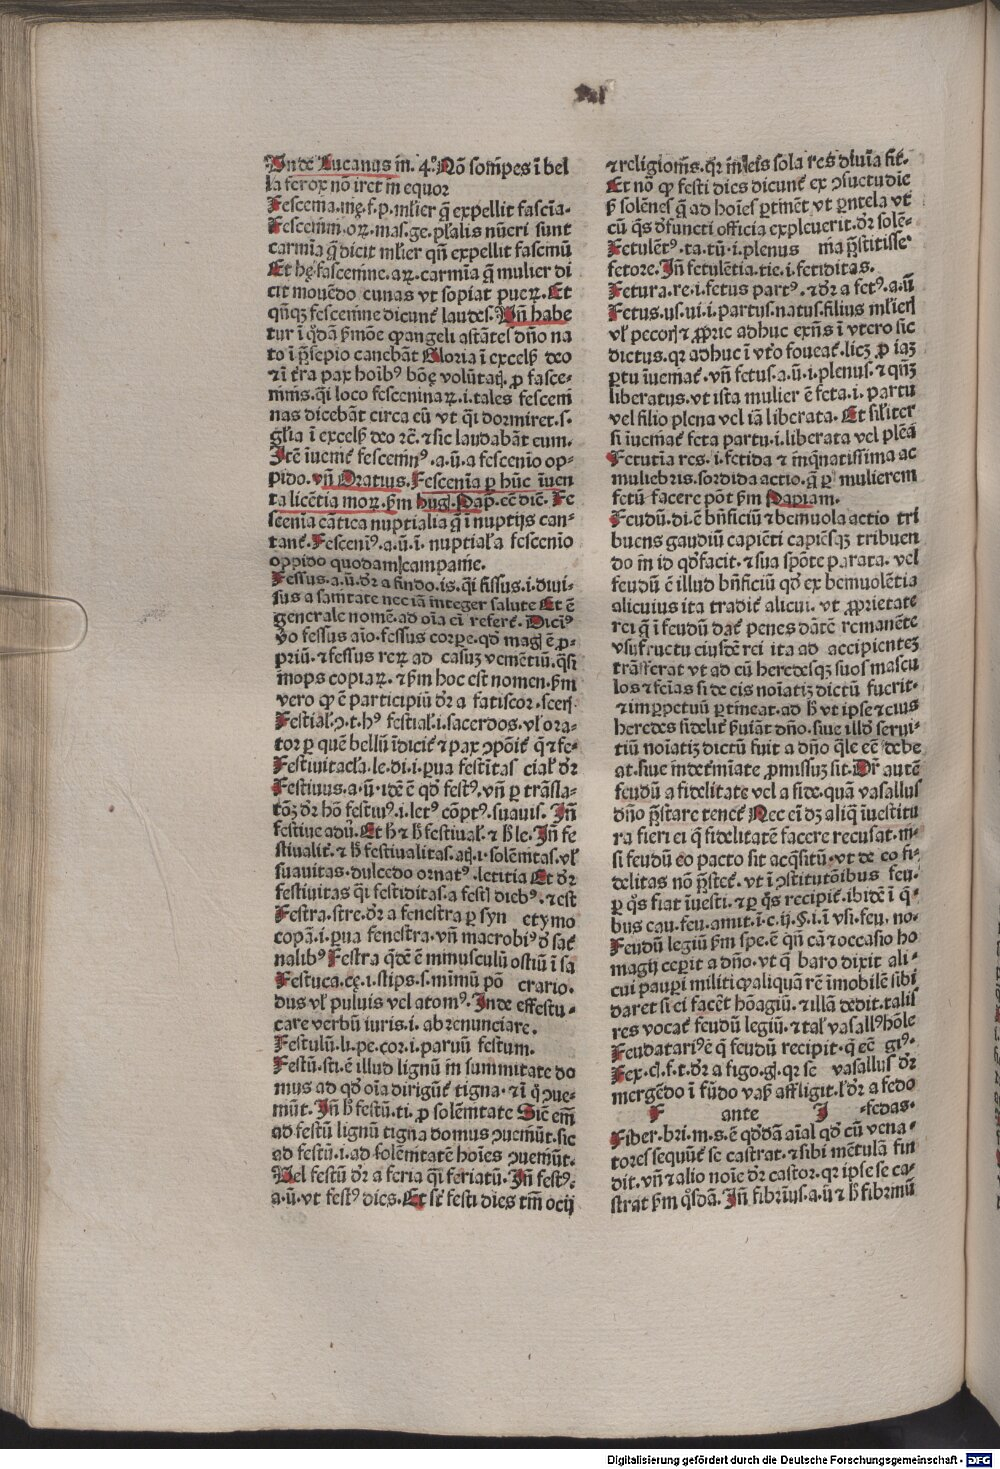 Vnde Lucanus in .4.º Nō sonīpes ī bel
la ferox nō iret in equor
Fescenia.nię.f.p.mĺier q̄ expellit fascīa.
Fescenīni.oꝝ.mas.ge.pĺalis nūeri sunt
carmīa q̄ dicit mĺier qn̄ expellit fascinū
Et hę.fascenine.aꝝ.carmīa q̄ mulier di
cit mouēdo cunas vt sopiat pueꝝ. Et
qn̄qꝫ fescenine dicunt̄ laudes. Vn̄ habe
tur ī q̄dā ẜmōe ꝙ angeli astātes dn̄o na
to ī p̄sepio canebāt Gloria ī excelẜ deo
⁊ ī t̄ra pax hoībꝰ bōę volūtaꝗ. ꝓ fasce-
ninis.q̄i loco fesceninaꝝ.i.tales fesceni
nas dicebāt circa eū vt q̄i dormiret.s.
gĺia ī excelẜ deo ⁊c̄. ⁊ sic laudabāt eum.
Itē īuenit̄ fesceninꝰ.a.ū.a fescenīo op-
pido. vn̄ Oratius. Fescenīa ꝑ hūc īuen
ta licētia moꝝ. ẜm hug. Pap̄. eē diē. Fe
scenīa cātica nuptialia q̄ ī nuptijs can-
tant̄. Fescenīꝰ.a.ū.i. nuptiaĺa fescenio
oppido quodam campanie.
Fessus.a.ū.dr̄ a findo.is.q̄i fissus.i.diui-
sus a sanitate nec iā integer salute Et ē
generale nomē. ad oīa eī refert̄. Dicīꝰ
ꝟo fessus aīo.fessus corpe.qd̄ mag ē ꝓ-
priū.⁊ fessus reꝝ ad casuꝫ veniētiū.q̄si
inops copiaꝝ. ⁊ ẜm hoc est nomen. ẜm
vero ꝙ ē participiū dr̄ a fatiscor.sceri
Festiaĺ.ɔ.t.hꝰ festiaĺ.i.sacerdos.vĺ ora-
tor ꝑ quē bellū īdicit̄ ⁊ pax ɔpōit̄ q̄ ⁊ fe-
Festiuitacĺa.le.di.i.ꝑua festītas ciaĺ dr̄
Festiuus.a.ū.idē ē qd̄ festꝰ. vn̄ ꝑ trāsla-
tōꝫ dr̄ hō festiuꝰ.i.letꝰ cōptꝰ.suauis. In̄
festiue adū. Et ħ ⁊ ħ festiuaĺ. ⁊ ħ le. In̄ fe
stiualit̄. ⁊ ħ festiualitas.aꝗ.i.solēnitas.vĺ
suauitas.dulcedo ornatꝰ.letitia Et dr̄
festiuitas q̄i festiditas.a festi diebꝰ. ⁊ est
Festra.stre.dr̄ a fenestra ꝑ syn etymo
copā.i.ꝑua fenestra.vn̄ macrobiꝰ d̄ saẗ
nalibꝰ Festra q̄dē ē minusculū ostiū ī sa
Festuca.cę.i.stips.s.minimū pō crario.
dus vĺ puluis vel atomꝰ. Inde effestu-
care verbū iuris.i.abrenunciare.
Festulū.li.pe.cor.i.paruū festum.
Festū.sti.ē illud lignū in summitate do
mus ad qd̄ oīa dirigūt̄ tigna.⁊ ī q̄ ɔue-
niūt. In̄ ħ festū.ti.ꝓ solēnitate Sic enī
ad festū lignū tigna domus ɔueniūt.sic
ad festū.i.ad solēnitatē hoīes ɔueniūt.
Vel festū dr̄ a feria q̄i feriatū. In̄ festꝰ.
a.ū.vt festꝰ dies. Et st̄ festi dies tm̄ ocij
⁊ religiōis.qr̄ in leīs sola res diuīa fit̄.
Et nō ꝙ festi dies dicunt̄ ex ɔsuetudīe
ẜ solēnes q̄ ad hoīes ꝑtinēt vt ꝑntela vt
cū q̄s d̄functi officia expleuerit.dr̄ solē-
Fetulētꝰ.ta.tū.i.plenus nia p̄stitisse
fetore. In̄ fetulētia.tie.i.fetiditas.
Fetura.re.i.fetus partꝰ.⁊ dr̄ a fetꝰ.a.ū
Fetus.us.ui.i.partus.natus.filius mĺieri
vĺ pecori ⁊ ꝓprie adhuc exn̄s ī vtero sic
dictus.qr̄ adhuc ī vt̄o foueat̄.licꝫ ꝓ iaꝫ
ꝑtu īueniat̄. vn̄ fetus.a.ū.i.plenus.⁊ qn̄ꝫ
liberatus.vt ista mulier ē feta.i.partu
vel filio plena vel iā liberata. Et siĺiter
si īuenīat̄ feta partu.i.liberata vel plēa
Fetutīa res.i.fetida ⁊ inq̄natissima ac
muliebris.sordida actio.q̄ ꝑ mulierem
fetū facere pōt ẜm Papiam.
Feudū.di.ē bn̄ficiū ⁊ beniuola actio tri
buens gaudiū capiēti capiēsqꝫ tribuen
do in id qd̄facit.⁊ sua spōte parata. vel
feudū ē illud bn̄ficiū qd̄ ex beniuolētia
alicuius ita tradit̄ alicui.vt ꝓprietate
rei q̄ ī feudū dat̄ penes dātē remanēte
vsufructu eiusdē rei ita ad accipientez
trāsferat vt ad eū heredesqꝫ suos mascu
los ⁊ feīas si de eis noīatiꝫ dictū fuerit.
⁊ inꝑpetuū ꝑtineat.ad ħ vt ipse ⁊ eius
heredes fidelit̄ ẜuiāt dn̄o.siue illd̄ serui-
tiū noīatiꝫ dictū fuit a dn̄o q̄le eē debe
at.siue indet̄mīate ꝓmissuꝫ sit. Dr̄ autē
feudū a fidelitate vel a fide.quā vasallus
dn̄o p̄stare tenet̄ Nec eī dꝫ aliq̄ īuestitu
ra fieri ei q̄ fidelitatē facere recusat.ni-
si feudū eo pacto sit acq̄sitū.vt de eo fi-
delitas nō p̄stet̄.vt ī ɔstitutōibus feu.
ꝑ q̄s fiat īuesti.⁊ ꝑ q̄s recipit̄.ibidē ī q̄-
bus cau.feu.amit.ī.c.ij.§.i.ī vsi.feu.no-
Feudū legiū ẜm spe.ē qn̄ cā ⁊ occasio ho
magij cepit a dn̄o.vt q̄ baro dixit ali-
cui pauꝑi militi ꝙ aliquā rē īmobilē sibi
daret si ei facēt hōagiū.⁊ illā dedit.talis
res vocat̄ feudū legiū.⁊ taĺ vasallꝰ hōle
Feudatariꝰ ē q̄ feudū recipit.q̄ eē giꝰ.
Fex.cĺ.f.t.dr̄ a figo.gĺ.qr̄ se vasallus dr̄
mergēdo ī fūdo vaẜ affligit.ĺ dr̄ a fedo
F ante I .fedas.
Fiber.bri.m.s.ē qd̄dā aīal qd̄ cū vena-
tores sequūt̄ se castrat.⁊ sibi mētulā fin
dit.vn̄ ⁊ alio noīe dr̄ castor.qr̄ ipse se ca-
strat ẜm q̄sdā. In̄ fibrīus.a.ū ⁊ ħ fibrinū
Digitalisierung gefördert durch die Deutsche Forschungsgemeinschaft - DFG